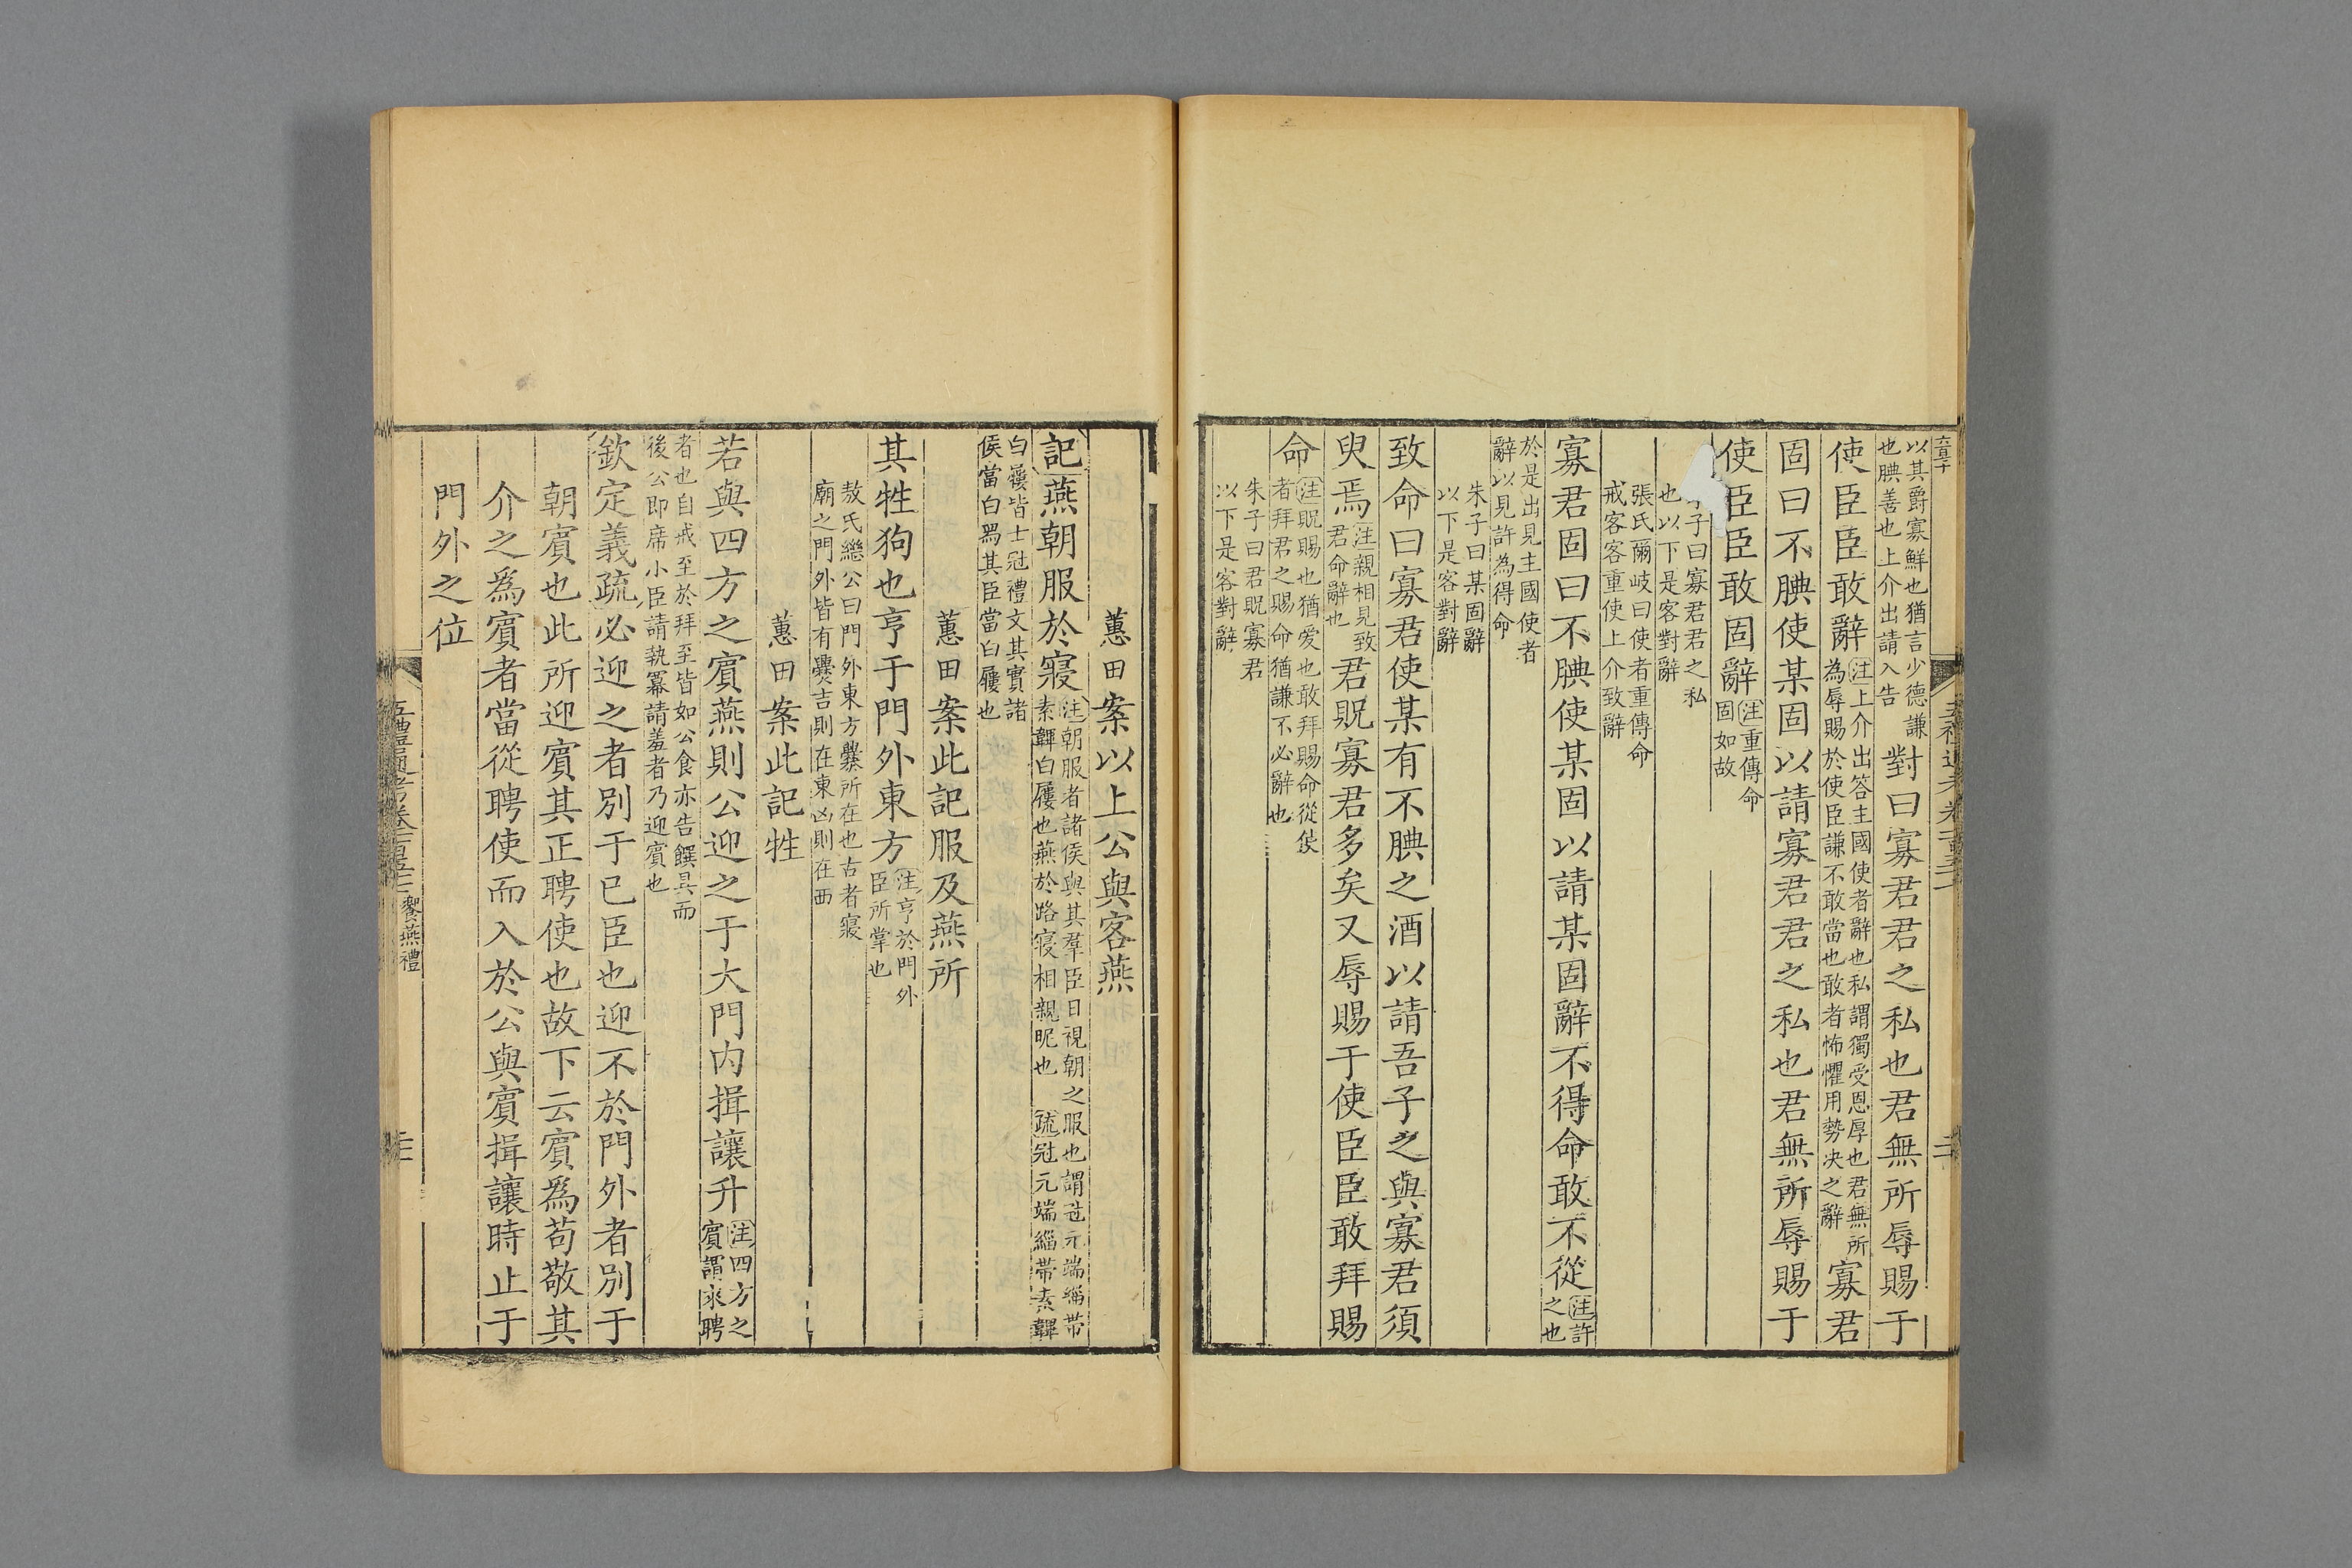 以其爵寡鮮也猶言少德謙
也腆善也上介出請入告
對曰寡君君之私也君無所辱賜于
使臣臣敢辭
注上介出答主國使者辭也私謂獨受恩厚也君無所
為辱賜於使臣謙不敢當也敢者怖懼用勢决之辭
寡君
固曰不腆使某固以請寡君君之私也君無所辱賜于
使臣臣敢固辭
注重傳命
固如故
子曰寡君君之私
也以下是客對辭
張氏爾岐曰使者重傳命
戒客客重使上介致辭
寡君固曰不腆使某固以請某固辭不得命敢不從
注許
之也
於是出見主國使者
辭以見許為得命
朱子曰某固辭
以下是客對辭
致命曰寡君使某有不腆之酒以請吾子之與寡君須
臾焉
注親相見致
君命辭也
君貺寡君多矣又辱賜于使臣臣敢拜賜
命
注貺賜也猶愛也敢拜賜命從使
者拜君之賜命猶謙不必辭也
朱子曰君貺寡君
以下是客對辭
蕙田案以上公與客燕
記燕朝服於寢
注朝服者諸侯與其羣臣日視朝之服也謂冠元端緇帶
素韠白屨也燕於路寢相親昵也
疏冠元端緇帶素韠
白屨皆士冠禮文其實諸
侯當白舄其臣當白屨也
蕙田案此記服及燕所
其牲狗也亨于門外東方
注亨於門外
臣所掌也
敖氏繼公曰門外東方爨所在也古者寢
廟之門外皆有爨吉則在東凶則在西
蕙田案此記牲
若與四方之賓燕則公迎之于大門内揖讓升
注四方之
賓謂來聘
者也自戒至於拜至皆如公食亦告饌具而
後公即席小臣請執冪請羞者乃迎賓也
欽定義疏必迎之者别于已臣也迎不於門外者别于
朝賓也此所迎賓其正聘使也故下云賓爲苟敬其
介之爲賓者當從聘使而入於公與賓揖讓時止于
門外之位
五禮通考卷一百五十三 饗燕禮